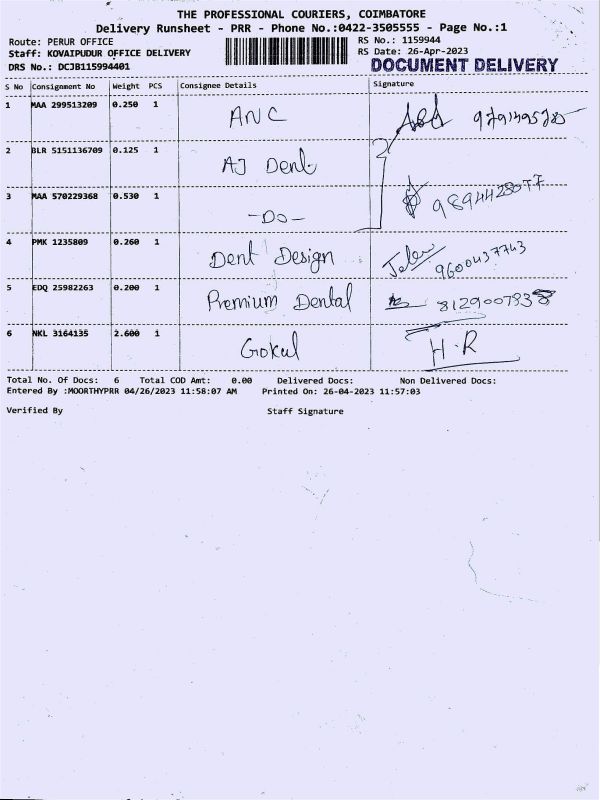 THE PROFESSIONAL COURIERS, COIMBATORE
Delivery Runsheet - PRR - Phone No.:0422-3505555 - Page No.:1
Route: PERUR OFFICE
RS No.: 1159944
Staff: KOVAIPUDUR OFFICE DELIVERY
RS Date: 26-Apr-2023
DRS No.: DCJB115994401
DOCUMENT DELIVERY
S No Consignment No Weight PCS Consignee Details Signature
1 MAA 299513209 0.250 1 ANC
2 BLR 5151136709 0.125 1 AJ Dent
3 MAA 570229368 0.530 1 -Do- 9894428077
4 PMK 1235809 0.260 1 Dent Design 9600437743
5 EDQ 25982263 0.200 1 Premium Dental
6 NKL 3164135 2.600 1 Gokul H.R
Total No. Of Docs: 6 Total COD Amt: 0.00 Delivered Docs: Non Delivered Docs:
Entered By :MOORTHYPRR 04/26/2023 11:58:07 AM Printed On: 26-04-2023 11:57:03
Verified By Staff Signature